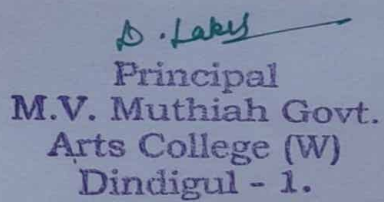 D. Laks
Principal
M.V. Muthiah Govt.
Arts College (W)
Dindigul - 1.